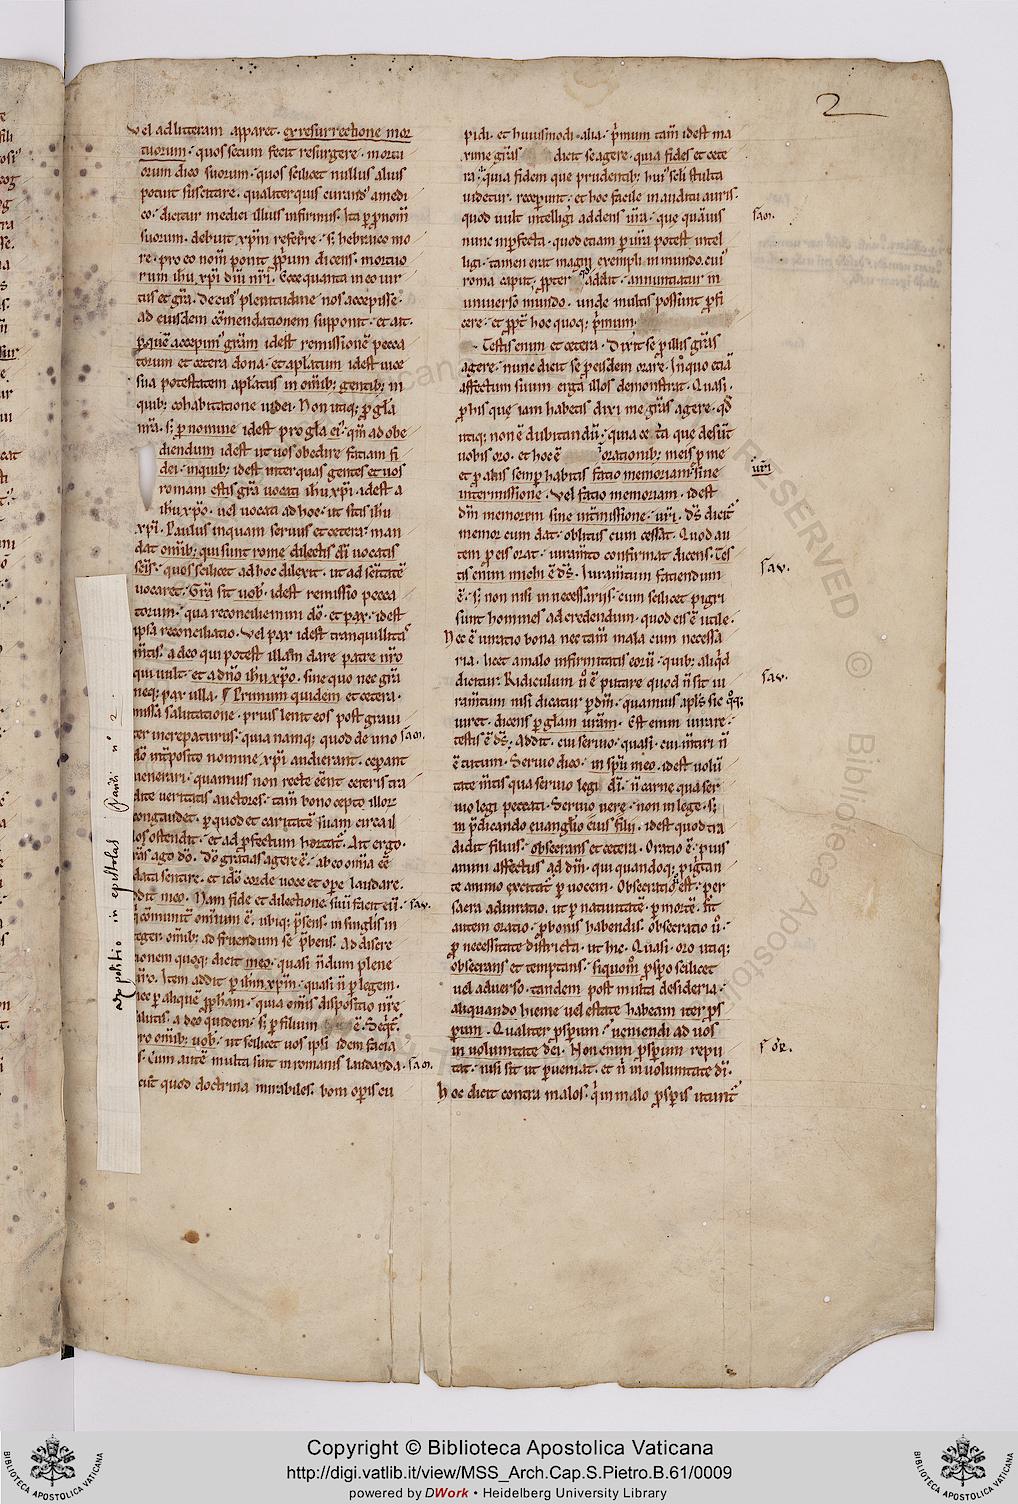 2
vel ad litteram apparet. ex resurrectione mor
tuorum. quos secum fecit resurgere. mortu
orum dico suorum. quos scilicet nullus alius
potuit suscitare. qualiterquis curand᷒ a medi
co. dicitur medici illius infirmus. Ita p̱ p̱nom̄
suorum. debuit xp̄m referre. s; hebraico mo
re. pro eo nom̄ ponit p̱prium dicens. mortuo
rum ihu xp̄i dn̄i nr̄i. Ecce quanta in eo uir
tus et gr̄a. de cui᷒ plenitudine nos accepisse.
ad eiusdem cōmendationem supponit. et ait.
p̱ quē accepim᷒ gr̄am idest remissionē pecca
torum et cetera dona. et apl̄atum idest uice
sua potestatem apl̄atus in om̄ib; gentib; in
quib; cohabitatione uidei. Non utiq; p̱ gl̄a
nr̄a. s; p̱ nomine idest pro gl̄a ei᷒. qm̄ ad obe
diendum idest ut uos obedire faciam fi
dei. inquib; idest inter quas gentes et uos
romani estis gr̄a uocati ihu xp̄i. idest a
ihu xp̄o. uel uocati ad hoc. ut sitis ihu
xp̄i. Paulus inquam seruus et cetera. man
dat om̄ib; qui sunt rome dilectis dī uocatis
sc̄is. quos scilicet ad hoc dilexit. ut ad sc̄itatē
uocaret. Gr̄a sit uob᷒. idest remissio pecca
torum. qua reconciliemini dō. et pax. idest
ipsa reconciliatio. vel pax idest tranquillitas
m̄tis. a deo qui potest illam dare patre nr̄o
qui uult. et a dn̄o ihu xp̄o. sine quo nec gr̄a
neq; pax ulla. ¶ Primum quidem et cetera.
missa salutatione. prius lenit eos post graui
ter increpaturus. quia namq; quod de uno
dō int̄posito nomine xp̄i audierant. ceperant
uenerari. quamuis non recte eēnt ceteris tra
dite ueritatis auctores. tam̄ bono cepto illor
congaudet. p̱ quod et caritatē suam circa il
los ostendit. et ad p̱fectum hortat᷒. Ait ergo.
gr̄as ago dō. Dō gratias agere ē. ab eo om̄ia eē
data sentire. et ideo corde uoce et ope laudare.
addit meo. Nam fide et dilectione suū facit eū.
cōmunit᷒ omnium ē. ubiq; p̄sens. in singlis in
teger. om̄ib; ad fruendum se p̄bens. Ad discre
tionem quoq; dicit meo. quasi n̄dum plene
nr̄o. Item addit p̱ ihm xp̄m. quasi n̄ p̱ legem.
nec p̱ aliquē p̱pham. quia om̄is dispositio nr̄e
salutis. a deo quidem. s; p̱ filium ē. Seq̄t᷒.
pro om̄ib; uob᷒. ut scilicet uos ipsi idem facia
tis. Cum autē multa sint in romanis laudanda.
sicut quod doctrina mirabiles. boni operis cu
pidi. et huiusmodi alia. p̄mum tam̄ idest ma
xime gr̄as dicit se agere. quia fides et cete
ra. quia fidem que prudentib; hui᷒ sc̄li stulta
uidetur. receperint. et hoc facile in auditu auris.
quod uult intelligi addens ur̄a. que quāuis
nunc inp̱fecta. quod etiam p̱ ur̄a potest intel
ligi. tamen erat magni exempli in mundo. cui᷒
roma caput. p̱pter addit. annuntiatur in
uniuerso mundo. unde multis possunt p̱fi
cere. et p̱pt̄ hoc quoq; p̄mum.
Testis enim et cetera. Dixit se p̱ illis gr̄as
agere. nunc dicit se p̱ eisdem orare. In quo etiā
affectum suum erga illos demonstrat. Quasi.
p̱ his que iam habetis dixi me gr̄as agere. qd̄
utiq; non ē dubitandū. quia cet̄a que desūt
uobis oro. et hoc ē orationib; meis p̱ me
et p̱ aliis semp̱ habitis facio memoriam ur̄i sine
intermissione. vel facio memoriam. idest
dm̄ memorem sine int̄missione. ur̄i. ds̄ dicit᷒
memor cum dat. oblitus cum cessat. Quod au
tem p̱ eis orat. iuram̄to confirmat dicens. Tes
tis enim michi ē ds̄. Iuram̄tum faciendum
ē. s; non nisi in necessariis. cum scilicet pigri
sunt homines ad credendum. quod eis ē utile.
Nec ē iuratio bona nec tam̄ mala cum necessa
ria. licet a malo infirmitatis eorū. quib; aliq̄d
dicitur. Ridiculum u̅o ē putare quod n̄ sit iu
ram̄tum nisi dicatur p̱ dm̄. quamuis apl̄s sic quoq;
iuret. dicens p̱ gl̄am ur̄am. Est enim iurare.
testis ē ds̄. Addit. cui seruio. quasi. cui m̄tiri n̄
ē tutum. Seruio dico. in sp̄u meo. idest uolū
tate m̄tis qua seruio legi dī. n̄ carne qua ser
uio legi peccati. Seruio uere. non in lege. s;
in p̄dicando euangl̄io eius filii. idest quod tra
didit filius. obsecrans et cetera. Oratio ē. pius
animi affectus ad dm̄. qui quandoq; pigritan
te animo excitat᷒ p̱ uocem. Obsecratio est. per
sacra adiuratio. ut p̱ natiuitatē. p̱ mortē. Est
autem oratio. p̱ bonis habendis. obsecratio u̅o.
p̱ necessitate districta. ut hic. Quasi. oro itaq;
obsecrans et temptans. siquom̄o p̱sp̱o scilicet
uel aduerso. tandem post multa desideria.
aliquando hieme uel estate habeam iter p̱s
p̱um. Qualiter p̱sp̱um. ueniendi ad uos
in uoluntate dei. Non enim p̱sp̱um repu
tat. nisi sit ut p̱ueniat. et n̄ in uoluntate dī.
Hoc dicit contra malos. qui in malo p̱sp̱is utunt᷒
sam.
sav.
sam.
sam.
ur̄i
sav.
sav.
expositio in epistolas Pauli n° 2
Copyright © Biblioteca Apostolica Vaticana
http://digi.vatlib.it/view/MSS_Arch.Cap.S.Pietro.B.61/0009
powered by DWork • Heidelberg University Library
BIBLIOTECA APOSTOLICA VATICANA
BIBLIOTECA APOSTOLICA VATICANA